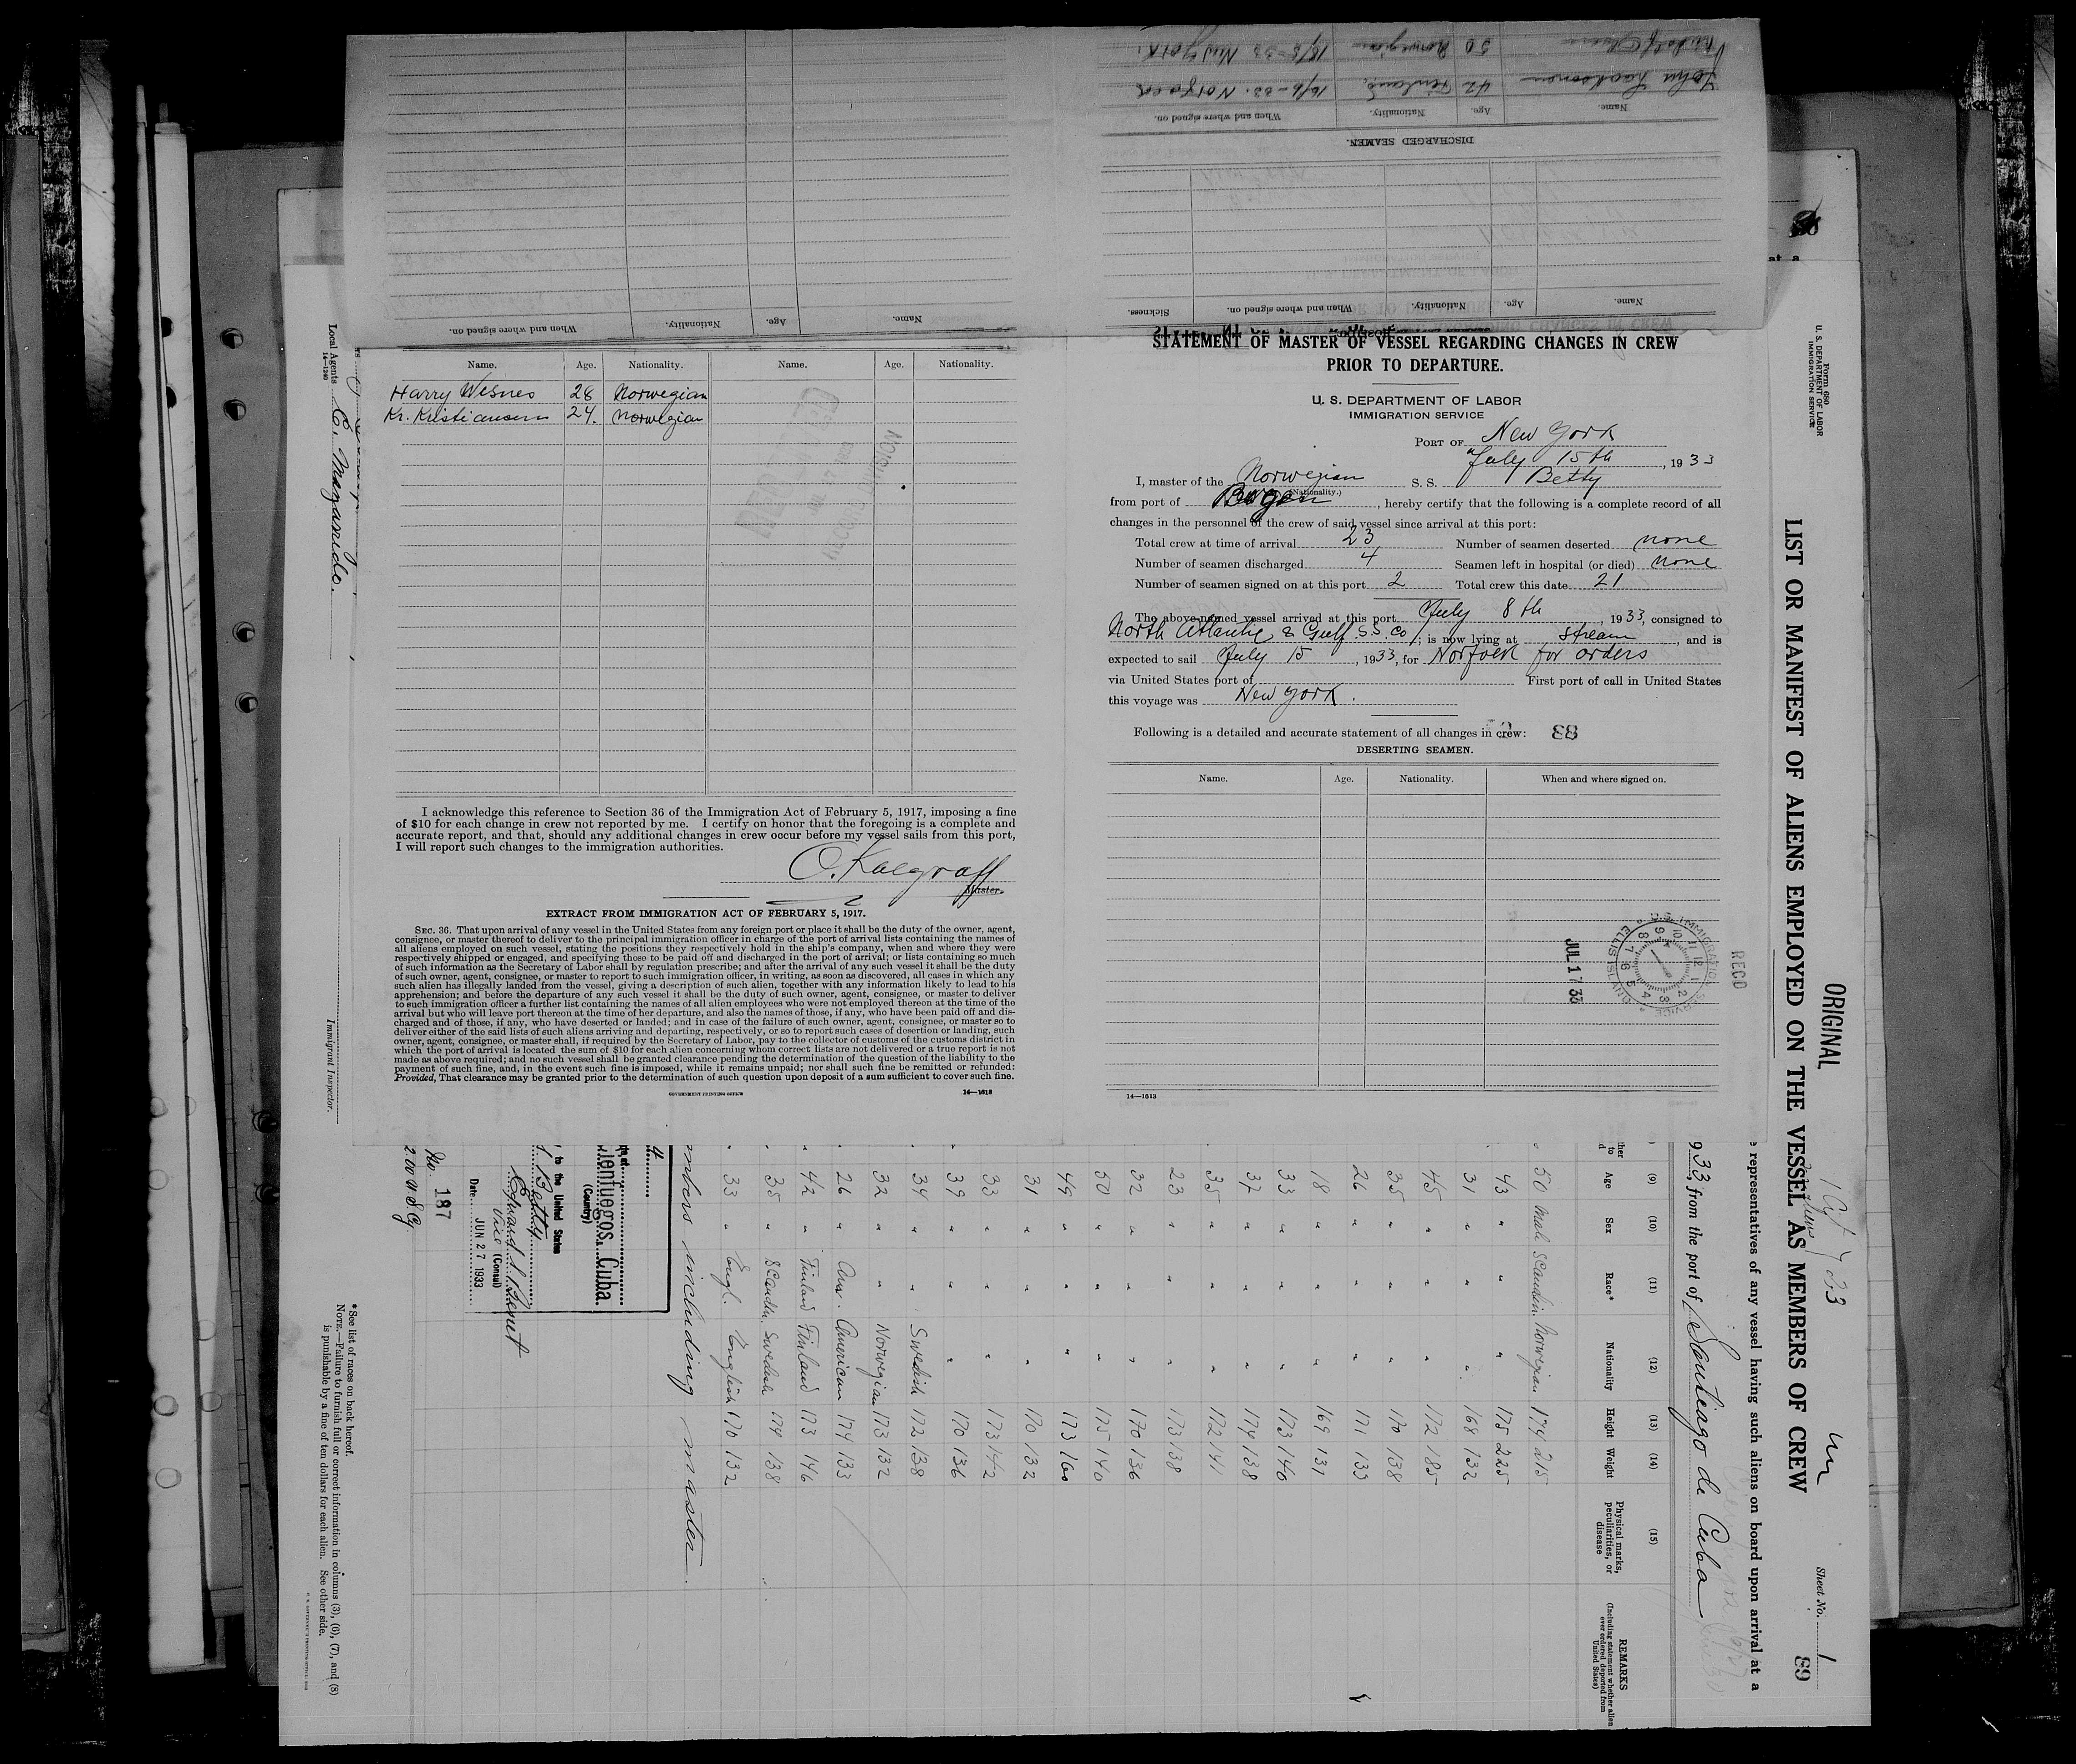 John 42 Finland 16/6-33. Norfolk
Rudolf 50 Norwegian 18/5-33 New York
Name. Age. Nationality. When and where signed on.
DISCHARGED SEAMEN.
Name. Age. Nationality. When and where signed on. Sickness.
Name. Age. Nationality. When and where signed on.
Name. Age. Nationality. Name. Age. Nationality.
Harry Wesnes 28 Norwegian
Kr. Kristiansen 24. Norwegian
I acknowledge this reference to Section 36 of the Immigration Act of February 5, 1917, imposing a fine
of $10 for each change in crew not reported by me. I certify on honor that the foregoing is a complete and
accurate report, and that, should any additional changes in crew occur before my vessel sails from this port,
I will report such changes to the immigration authorities.
O. Kalgraff
Master.
EXTRACT FROM IMMIGRATION ACT OF FEBRUARY 5, 1917.
SEC. 36. That upon arrival of any vessel in the United States from any foreign port or place it shall be the duty of the owner, agent,
consignee, or master thereof to deliver to the principal immigration officer in charge of the port of arrival lists containing the names of
all aliens employed on such vessel, stating the positions they respectively hold in the ship's company, when and where they were
respectively shipped or engaged, and specifying those to be paid off and discharged in the port of arrival; or lists containing so much
of such information as the Secretary of Labor shall by regulation prescribe; and after the arrival of any such vessel it shall be the duty
of such owner, agent, consignee, or master to report to such immigration officer, in writing, as soon as discovered, all cases in which any
such alien has illegally landed from the vessel, giving a description of such alien, together with any information likely to lead to his
apprehension; and before the departure of any such vessel it shall be the duty of such owner, agent, consignee, or master to deliver
to such immigration officer a further list containing the names of all alien employees who were not employed thereon at the time of the
arrival but who will leave port thereon at the time of her departure, and also the names of those, if any, who have been paid off and dis-
charged and of those, if any, who have deserted or landed; and in case of the failure of such owner, agent, consignee, or master so to
deliver either of the said lists of such aliens arriving and departing, respectively, or so to report such cases of desertion or landing, such
owner, agent, consignee, or master shall, if required by the Secretary of Labor, pay to the collector of customs of the customs district in
which the port of arrival is located the sum of $10 for each alien concerning whom correct lists are not delivered or a true report is not
made as above required; and no such vessel shall be granted clearance pending the determination of the question of the liability to the
payment of such fine, and, in the event such fine is imposed, while it remains unpaid; nor shall such fine be remitted or refunded:
Provided, That clearance may be granted prior to the determination of such question upon deposit of a sum sufficient to cover such fine.
GOVERNMENT PRINTING OFFICE 14—1613
STATEMENT OF MASTER OF VESSEL REGARDING CHANGES IN CREW
PRIOR TO DEPARTURE.
U. S. DEPARTMENT OF LABOR
IMMIGRATION SERVICE
PORT OF New York
July 15th, 1933
I, master of the Norwegian S. S. Betty
(Nationality.)
from port of Bergen, hereby certify that the following is a complete record of all
changes in the personnel of the crew of said vessel since arrival at this port:
Total crew at time of arrival 23 Number of seamen deserted none
Number of seamen discharged 4 Seamen left in hospital (or died) none
Number of seamen signed on at this port 2 Total crew this date 21
The above-named vessel arrived at this port July 8th, 1933, consigned to
North Atlantic & Gulf S.S. Co, is now lying at stream, and is
expected to sail July 15, 1933, for Norfolk for orders
via United States port of First port of call in United States
this voyage was New York.
Following is a detailed and accurate statement of all changes in crew: 83
DESERTING SEAMEN.
Name. Age. Nationality. When and where signed on.
JUL 17 33
U.S. IMMIGRATION SERVICE ELLIS ISLAND
RECD
14—1613
Form 680
U. S. DEPARTMENT OF LABOR
IMMIGRATION SERVICE
ORIGINAL
Sheet No. 1
89
LIST OR MANIFEST OF ALIENS EMPLOYED ON THE VESSEL AS MEMBERS OF CREW
representatives of any vessel having such aliens on board upon arrival at a
33, from the port of Santiago de Cuba
(9) (10) (11) (12) (13) (14) (15)
Age Sex Race* Nationality Height Weight Physical marks, peculiarities, or disease REMARKS
(Including statement whether alien ever ordered deported from United States)
50 male Scandin. Norwegian 174 215
43 " " " 175 225
31 " " " 168 132
45 " " " 172 185
35 " " " 170 138
26 " " " 171 133
18 " " " 169 131
33 " " " 173 140
37 " " " 174 138
35 " " " 172 141
23 " " " 173 138
32 " " " 170 136
50 " " " 175 140
49 " " " 173 160
31 " " " 170 132
33 " " " 173 142
39 " " " 170 136
34 " " Swedish 172 138
32 " " Norwegian 173 132
26 " Am. American 174 133
42 " Finland Finland 173 146
35 " Scandin. Swedish 174 138
33 " Engl. English 170 132
members including master.
Cienfuegos, Cuba.
(Country)
to the United States
Betty
Edward S. Benet
Vice (Consul)
Date JUN 27 1933
No. 187
*See list of races on back hereof.
NOTE.—Failure to furnish full or correct information in columns (3), (6), (7), and (8)
is punishable by a fine of ten dollars for each alien. See other side.
Local Agents
14—1240
Immigrant Inspector.